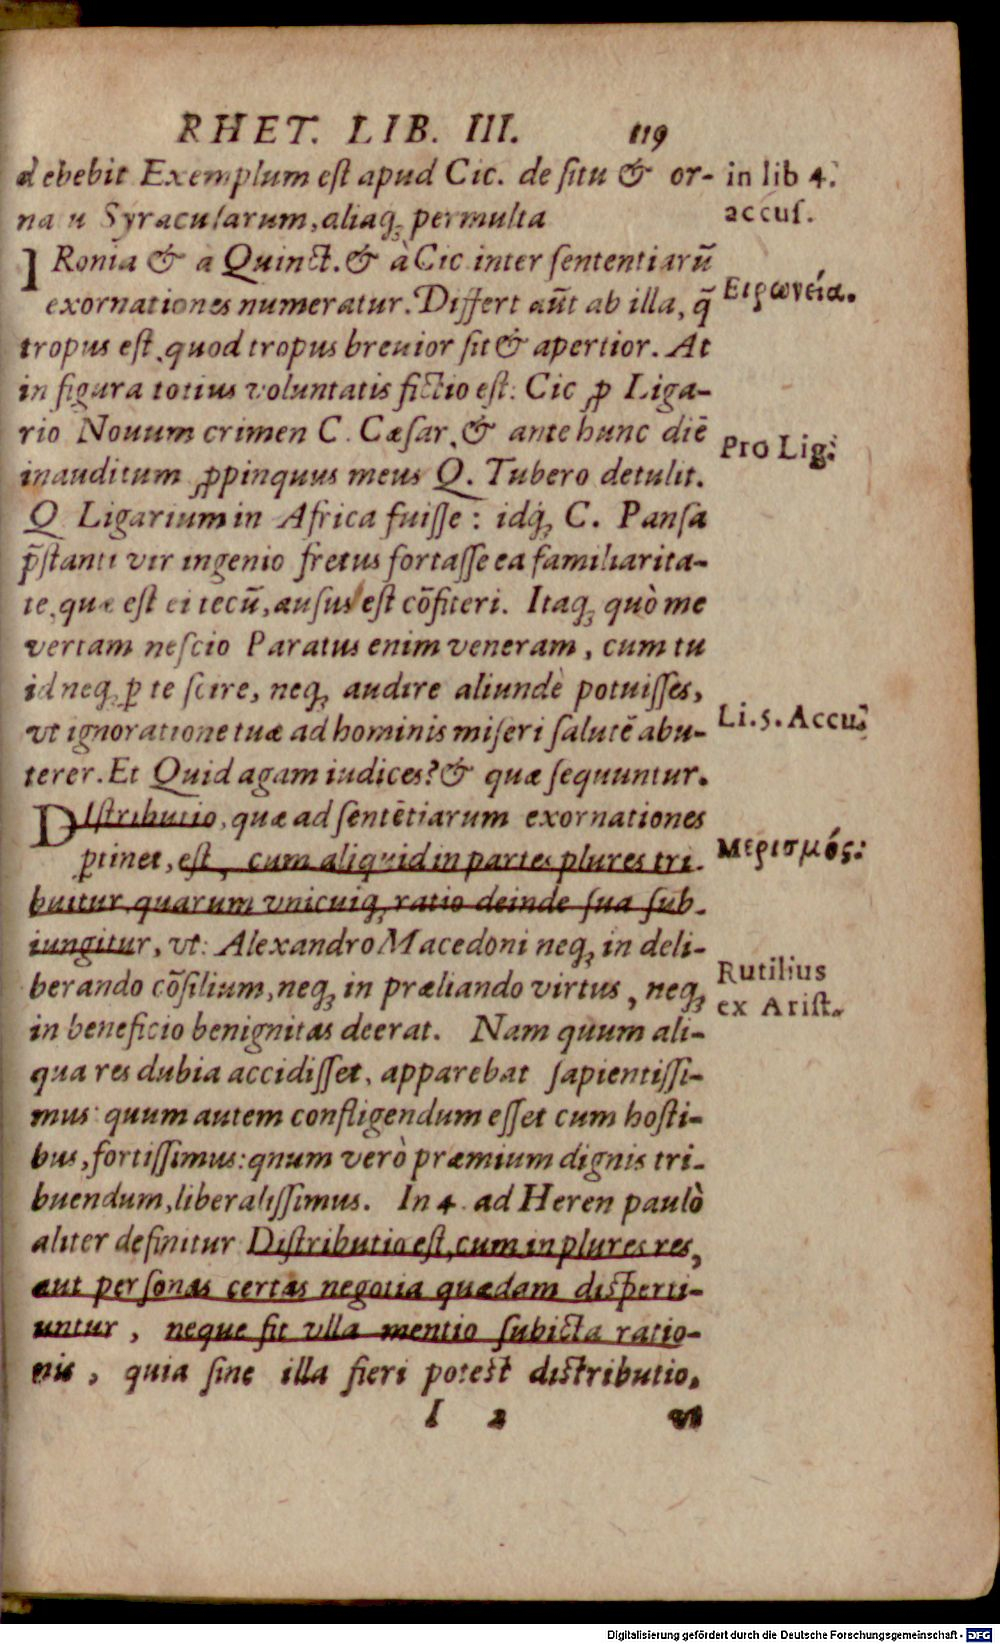 RHET. LIB. III. 119
debebit Exemplum est apud Cic. de situ & or-
na u Syracusarum, aliaq; permulta
IRonia & a Quinct. & à Cic inter sententiarũ
exornationes numeratur. Differt aũt ab illa, q̃
tropus est, quod tropus breuior sit & apertior. At
in figura totius voluntatis fictio est: Cic ꝓ Liga-
rio Nouum crimen C. Cæsar, & ante hunc diẽ
inauditum ꝓpinquus meus Q. Tubero detulit.
Q Ligarium in Africa fuisse: idq; C. Pansa
p̃stanti vir ingenio fretus fortasse ea familiarita-
te, quæ est ei tecũ, ausus est cõfiteri. Itaq; quò me
vertam nescio Paratus enim veneram, cum tu
id neq; ꝑ te scire, neq; audire aliundè potuisses,
vt ignoratione tuæ ad hominis miseri salutẽ abu-
terer. Et Quid agam iudices? & quæ sequuntur.
DIstributio, quæ ad sentẽtiarum exornationes
ꝑtinet, est, cum aliquid in partes plures tri-
buitur, quarum vnicuiq; ratio deinde sua sub-
iungitur, vt: Alexandro Macedoni neq; in deli-
berando cõsilium, neq; in præliando virtus, neq;
in beneficio benignitas deerat. Nam quum ali-
qua res dubia accidisset, apparebat sapientissi-
mus: quum autem confligendum esset cum hosti-
bus, fortissimus: qnum verò præmium dignis tri-
buendum, liberalissimus. In 4. ad Heren paulò
aliter definitur Distributio est, cum in plures res,
aut personas certas negotia quædam disperti-
untur, neque fit vlla mentio subicta ratio-
nis, quia sine illa fieri potest distributio.
I 2 vt
in lib 4.
accus.
Ειρωνεία.
Pro Lig.
Li. 5. Accu.
Μερισμός:
Rutilius
ex Arist.
Digitalisierung gefördert durch die Deutsche Forschungsgemeinschaft - DFG